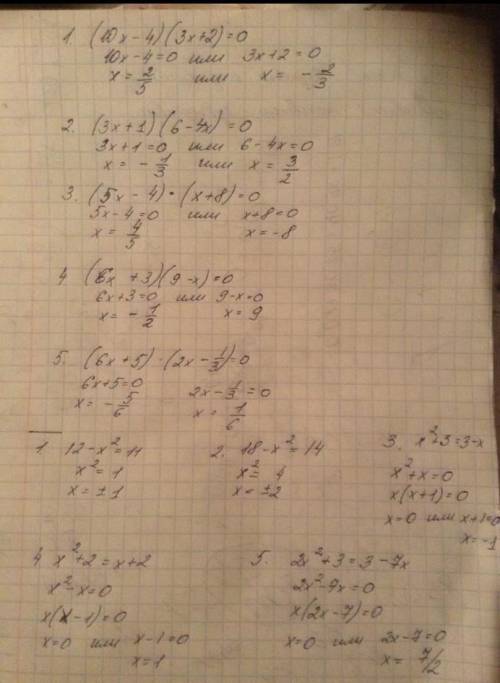 1. (10x-4)(3x+2)=0
10x-4=0 или 3x+2=0
x=2/5 или x=-2/3
2. (3x+1)(6-4x)=0
3x+1=0 или 6-4x=0
x=-1/3 или x=3/2
3. (5x-4)·(x+8)=0
5x-4=0 или x+8=0
x=4/5 x=-8
4 (6x+3)(9-x)=0
6x+3=0 или 9-x=0
x=-1/2 x=9
5. (6x+5)·(2x-1/3)=0
6x+5=0 2x-1/3=0
x=-5/6 x=1/6
1 12-x²=11
x²=1
x=±1
2. 18-x²=14
x²=4
x=±2
3. x²+3=3-x
x²+x=0
x(x+1)=0
x=0 или x+1=0
x=-1
4 x²+2=x+2
x²-x=0
x(x-1)=0
x=0 или x-1=0
x=1
5. 2x²+3=3-7x
2x²-7x=0
x(2x-7)=0
x=0 или 2x-7=0
x=7/2